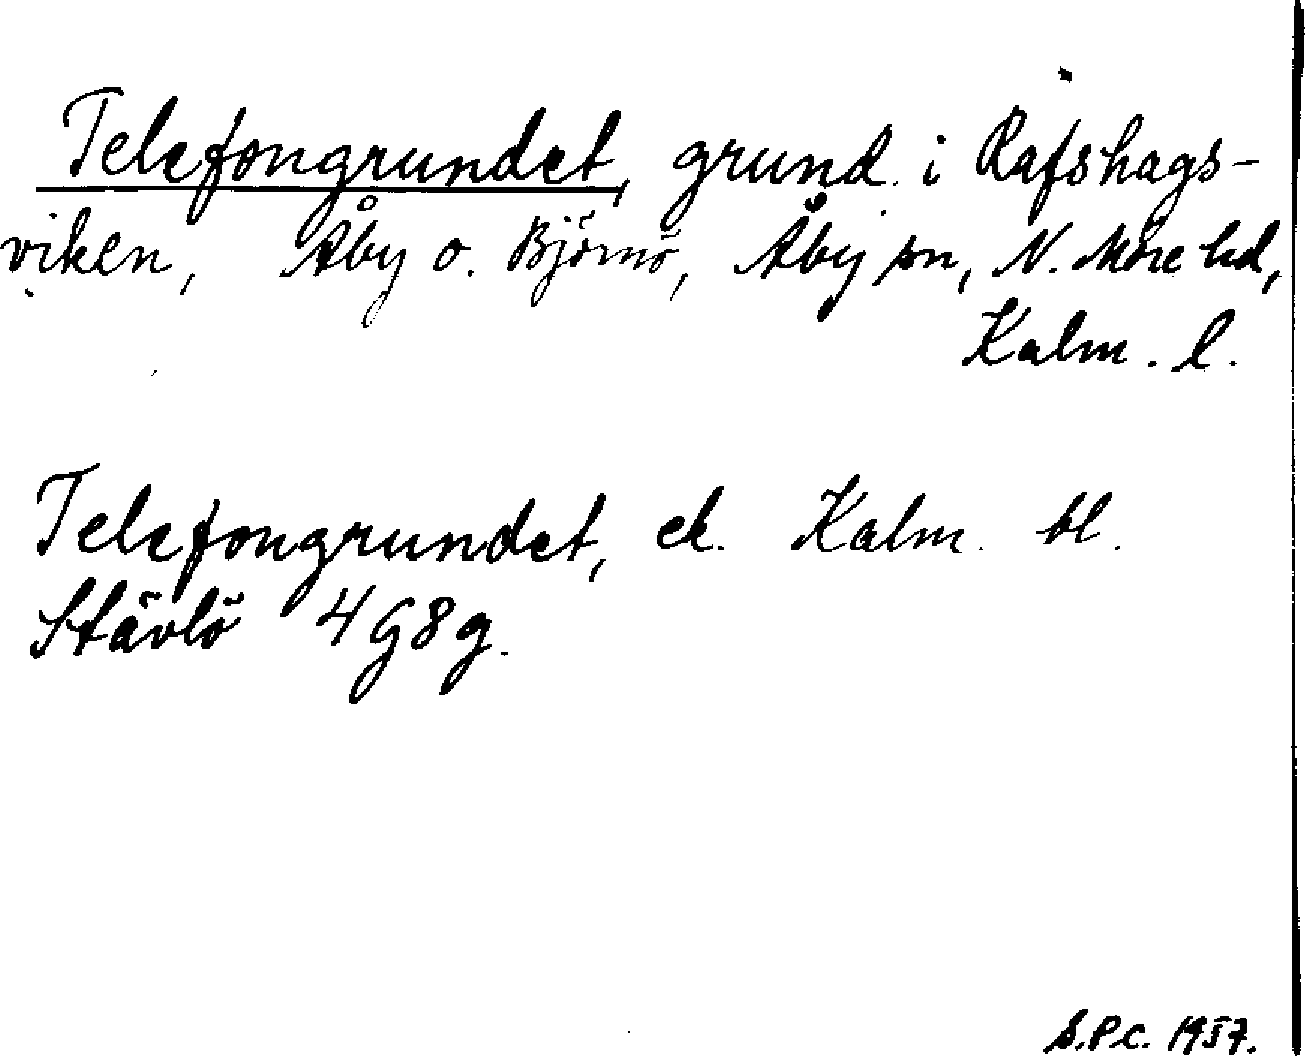 Telefongrundet, grund i Rafshags-
viken, Åby o. Björnö, Åby sn, N. Möre hd,
Kalm. l.
Telefongrundet, ek. Kalm. bl.
Stävlö 4G8g.
S.P.C. 1957.